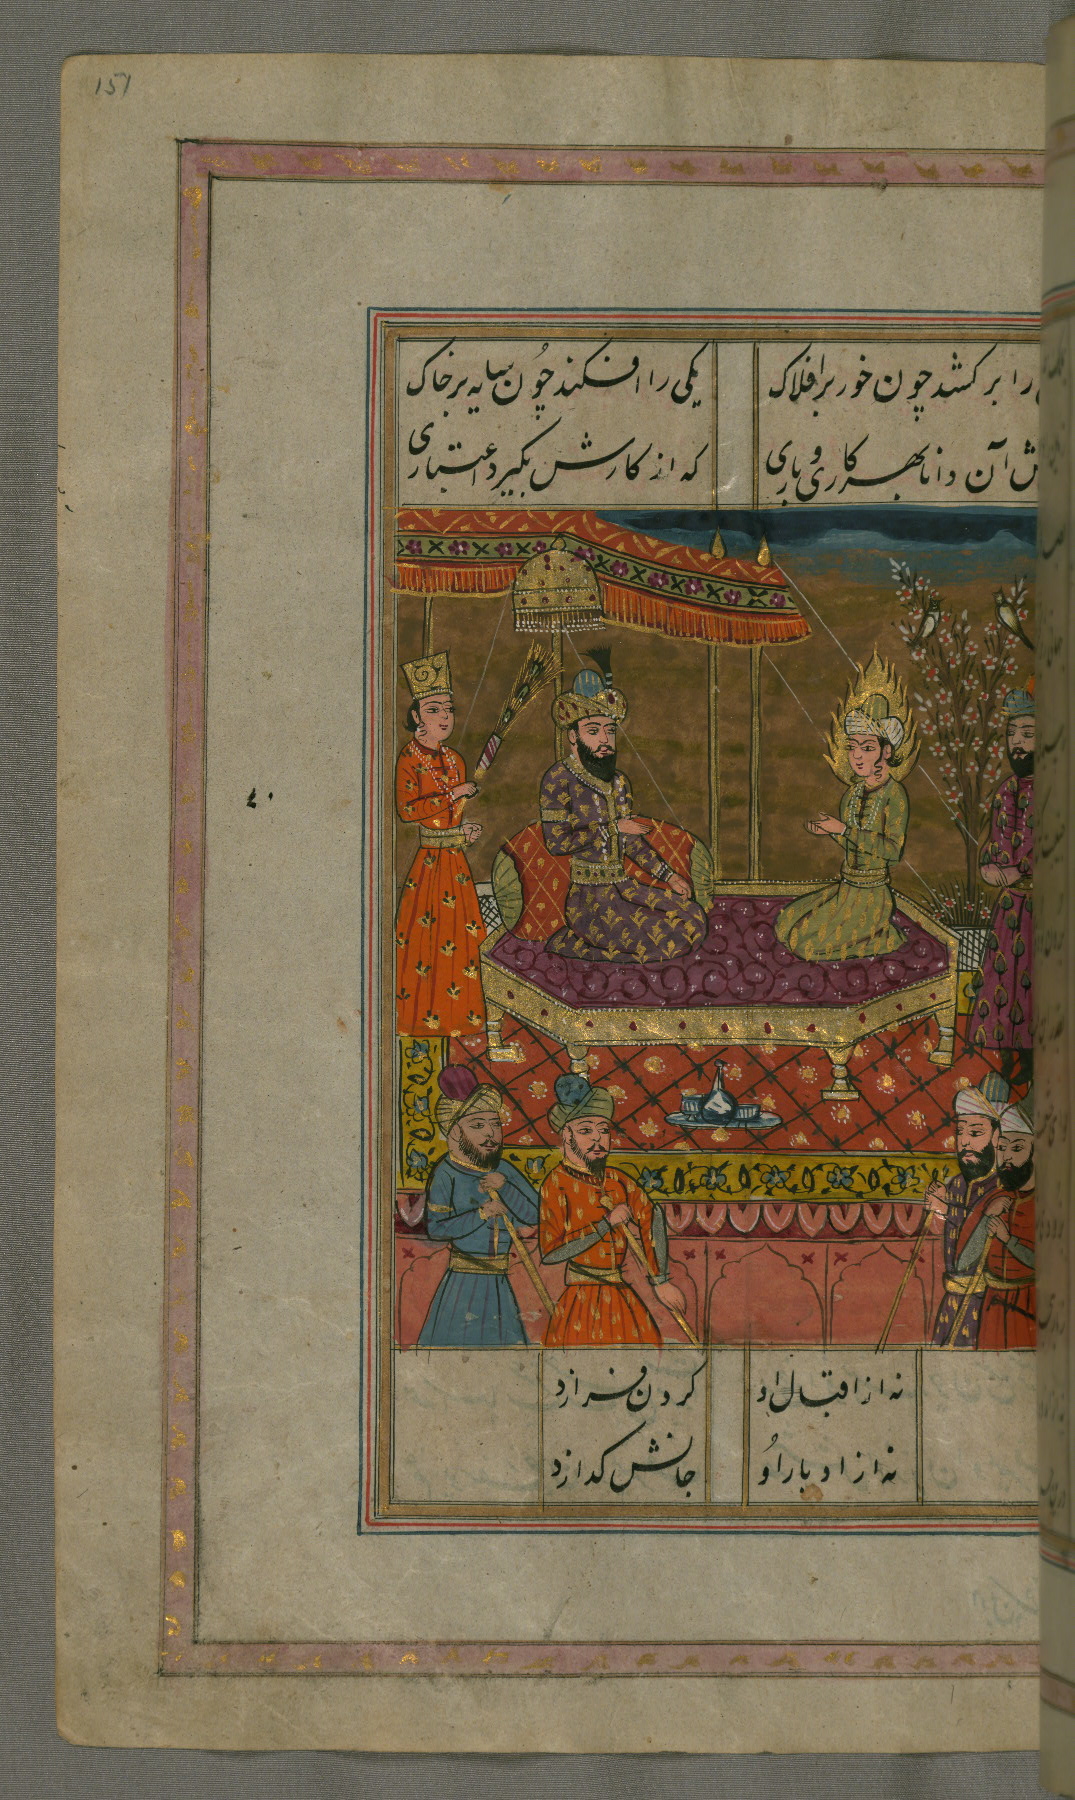 151
را بر کشد چون خور بر افلاک
یکی را افکند چون سایه بر خاک
ش آن دانا بهر کاری و باری
که از کارش بگیرد اعتباری
۴۰
نه از اقبال او گردن فرازد
نه از ادبار او جانش گدازد